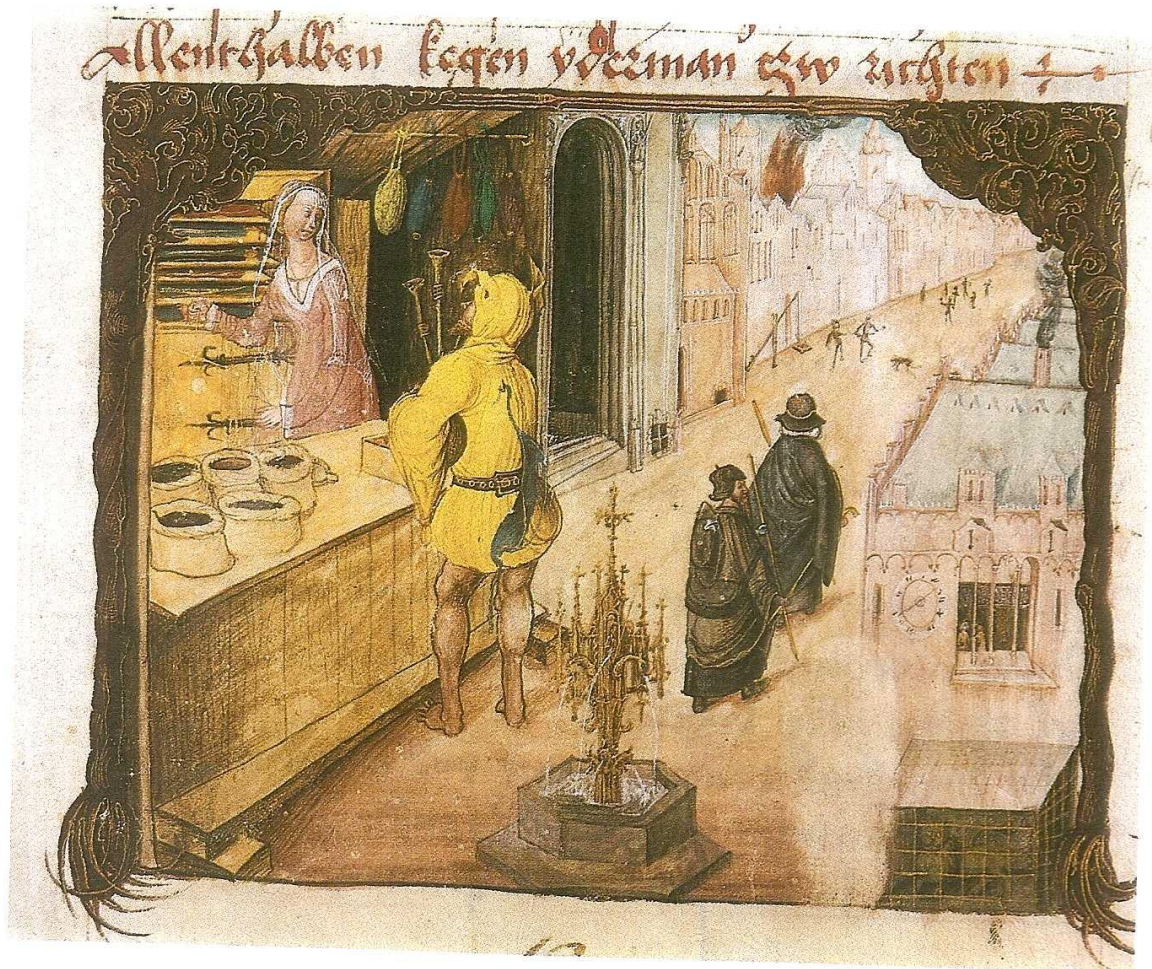 Allenthalben kegen yderman czw richten